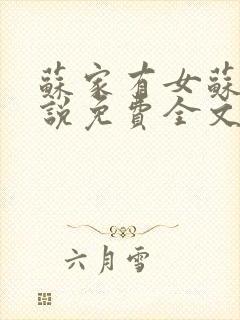 蘇家有女蘇
說免費全文
六月雪